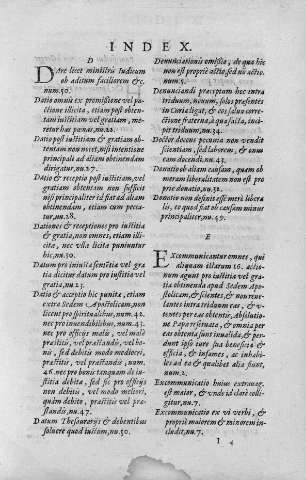 INDEX.
D
DAre licet ministris Iudicum
ob aditum faciliorem &c.
num.50.
Datio omnis ex promissione vel pa-
ctione illicita, etiam post obten-
tam iustitiam vel gratiam, me-
retur has pœnas, nu.22.
Datio post iustitiam & gratiam ob-
tentam non nocet, nisi intentione
principali ad aliam obtinendam
dirigatur, nu.27.
Datio & receptio post iustitiam, vel
gratiam obtentam non sufficit
nisi principaliter id fiat ad aliam
obtinendam, etiam cum pecca-
tur, nu.28.
Dationes & receptiones pro iustitia
& gratia, non omnes, etiam illici-
tæ, nec vsu licita puniuntur
hic, nu.30.
Datum pro iniusta sententia vel gra
tia dicitur datum pro iustitia vel
gratia, nu.23.
Datio & acceptio hic punita, etiam
extra Sedem Apostolicam, non
licent pro spiritualibus, num.42.
nec pro inuendibilibus, num.43.
nec pro officijs malis, vel malè
præstitis, vel præstandis, vel bo-
nis, sed debitis modo mediocri,
præstitis, vel præstandis, num.
46. nec pro bonis tanquam de iu-
stitia debita, sed sic pro officijs
non debitis, vel modo meliori,
quàm debito, præstitis vel præ-
standis, nu.47.
Datum Thesaurarijs & debentibus
soluere quod iustum, nu.50.
Denunciationis omissio, de qua hic
non est propriè actio sed nõ actio,
num.5.
Denunciandi præceptum hoc intra
triduum, nouum, solos præsentes
in Curia ligat, & eos saluo corre-
ctione fraterna, à qua facta, inci-
pit triduum, nu.34.
Doctor docens pecunia non vendit
scientiam, sed laborem, & onus
eam docendi, nu.43.
Donatio ob aliam causam, quam ob
meram liberalitatem non est pro
prie donatio, nu.32.
Donatio non definit esse merè libera
lis, eo quod fiat ob causam minus
principaliter, nu.59.
E
EXcommunicantur omnes, qui
aliquam illarum 16. actio-
num agunt pro iustitia vel gra-
tia obtinenda apud Sedem Apo-
stolicam, & scientes, & non reue-
lantes intra triduum ea, & ob-
tinentes per eas obtentis, Absolutio-
ne Papæ reseruata, & omnia per
eas obtenta sunt inualida, & per-
dunt ipso iure sua beneficia &
officia, & infames, ac inhabi-
les ad ea & quælibet alia fiunt,
num.2.
Excommunicatio huius extrauag.
est maior, & vnde id clarè colli-
gitur, nu.7.
Excommunicatio ex vi verbi, &
propriè maiorem & minorem in-
cludit, nu.7.
1 4